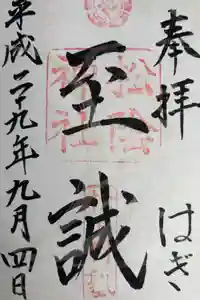 奉拝
はぎ
至誠
松陰神社
平成二十九年九月四日